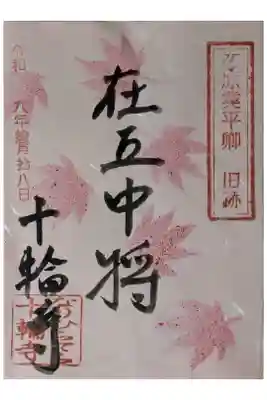 在原業平卿 旧跡
在五中将
十輪寺
令和 年 月拾八日
十輪寺